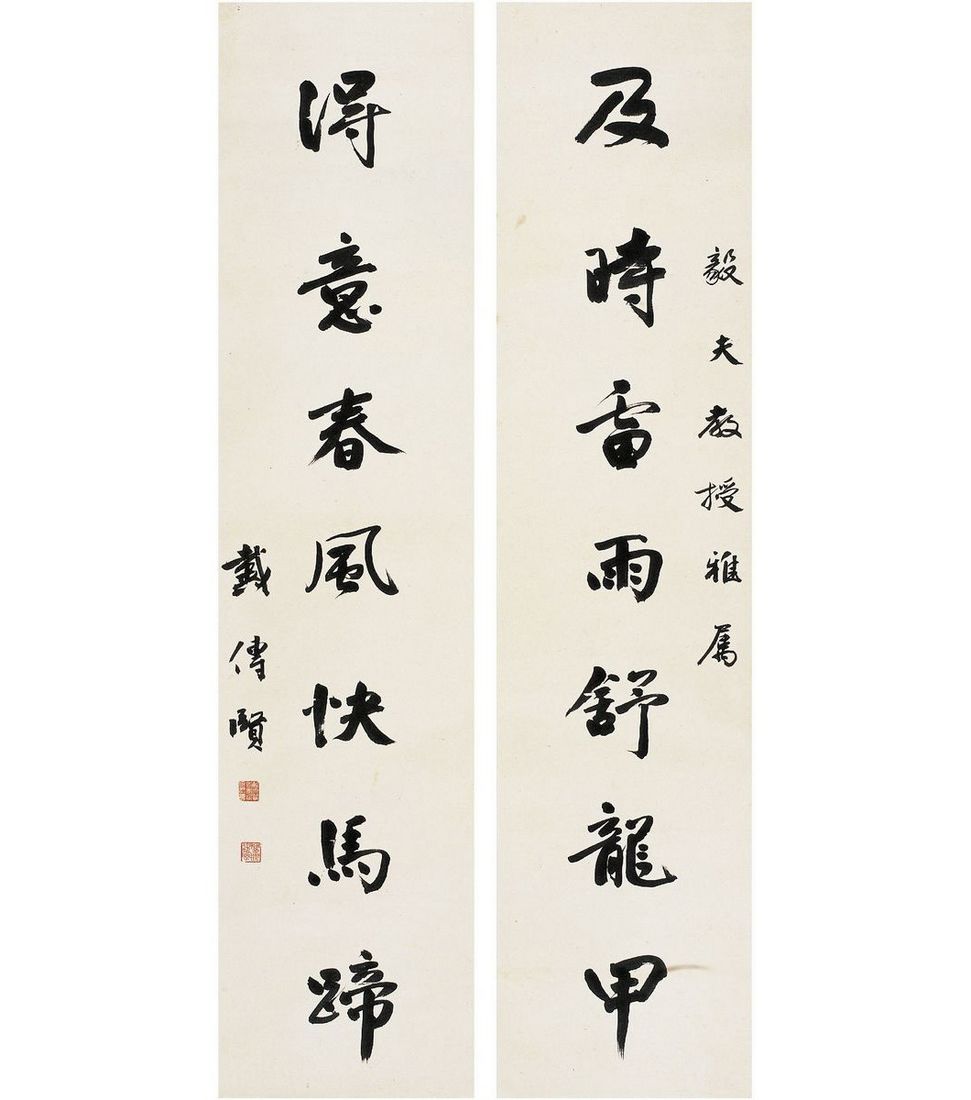 毅夫教授雅属
及時雷雨舒龍甲
得意春風快馬蹄
戴傳賢